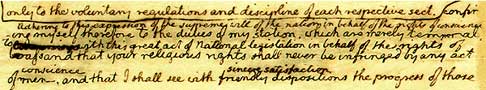 only to the voluntary regulations and discipline of each respective sect, confin
Adhering to this expression of the supreme will of the nation in behalf of the rights of conscience
ing myself therefore to the duties of my station, which are merely temporal
with this great act of National legislation in behalf of the rights of
and that your religious rights shall never be infringed by any act
conscience sincere satisfaction
of men, and that I shall see with friendly dispositions the progress of those